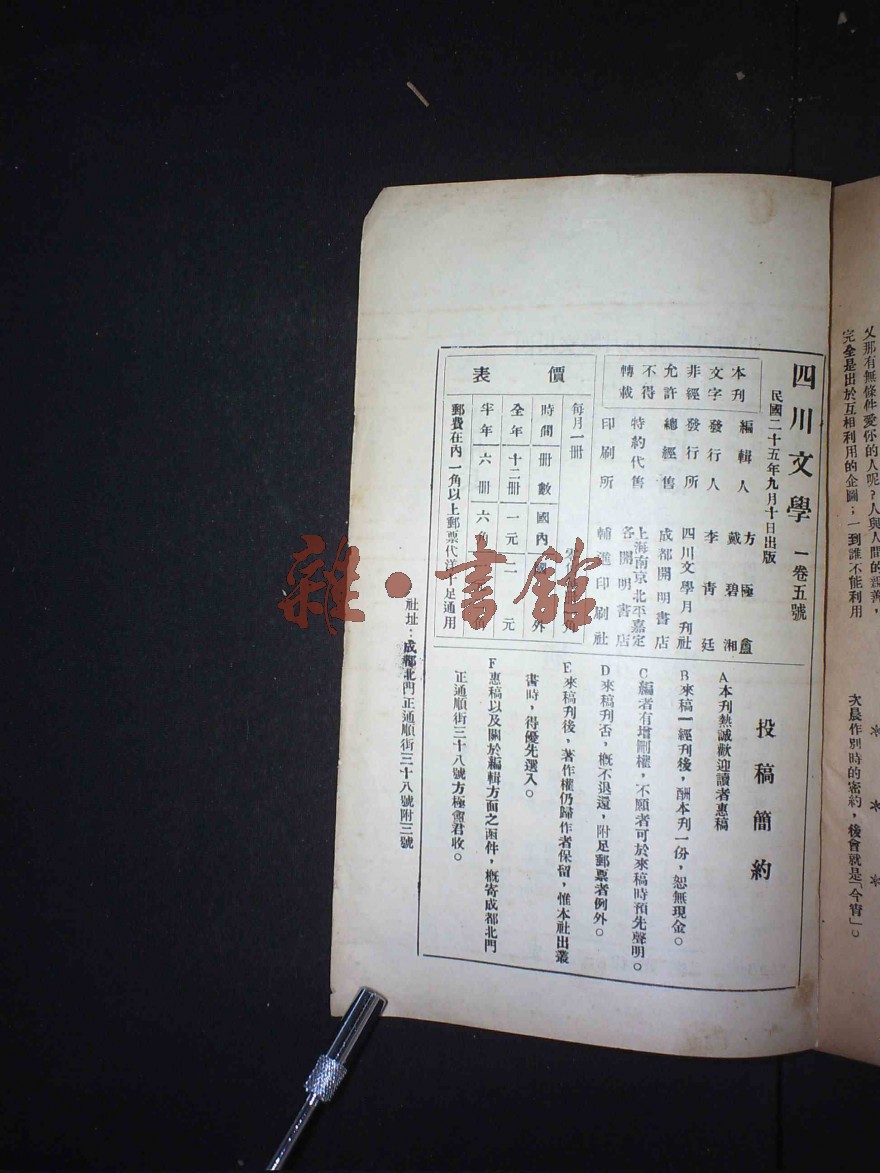 又那有無條件愛你的人呢？人與人間的親善，
完全是出於互相利用的企圖；一到誰不能利用
次晨作別時的密約，後會就是「今宵」。
四川文學 一卷五號
民國二十五年九月十日出版
編輯人 方極盦
戴碧湘
發行人 李青廷
發行所 四川文學月刊社
總經售 成都開明書店
特約代售 上海南京北平嘉定
各開明書店
印刷所 輔進印刷社
本刊
文字
非經
允許
不得
轉載
價表
每月一冊
時間 冊數 國內 外
全年 十二冊 一元 二元
半年 六冊 六角
郵費在內一角以上郵票代洋十足通用
投稿簡約
A本刊熱誠歡迎讀者惠稿
B來稿一經刊後，酬本刊一份，恕無現金。
C編者有增刪權，不願者可於來稿時預先聲明。
D來稿刊否，概不退還，附足郵票者例外。
E來稿刊後，著作權仍歸作者保留，惟本社出叢
書時，得優先選入。
F惠稿以及關於編輯方面之函件，概寄成都北門
正通順街三十八號方極盦君收。
社址：成都北門正通順街三十八號附三號
雜·書館